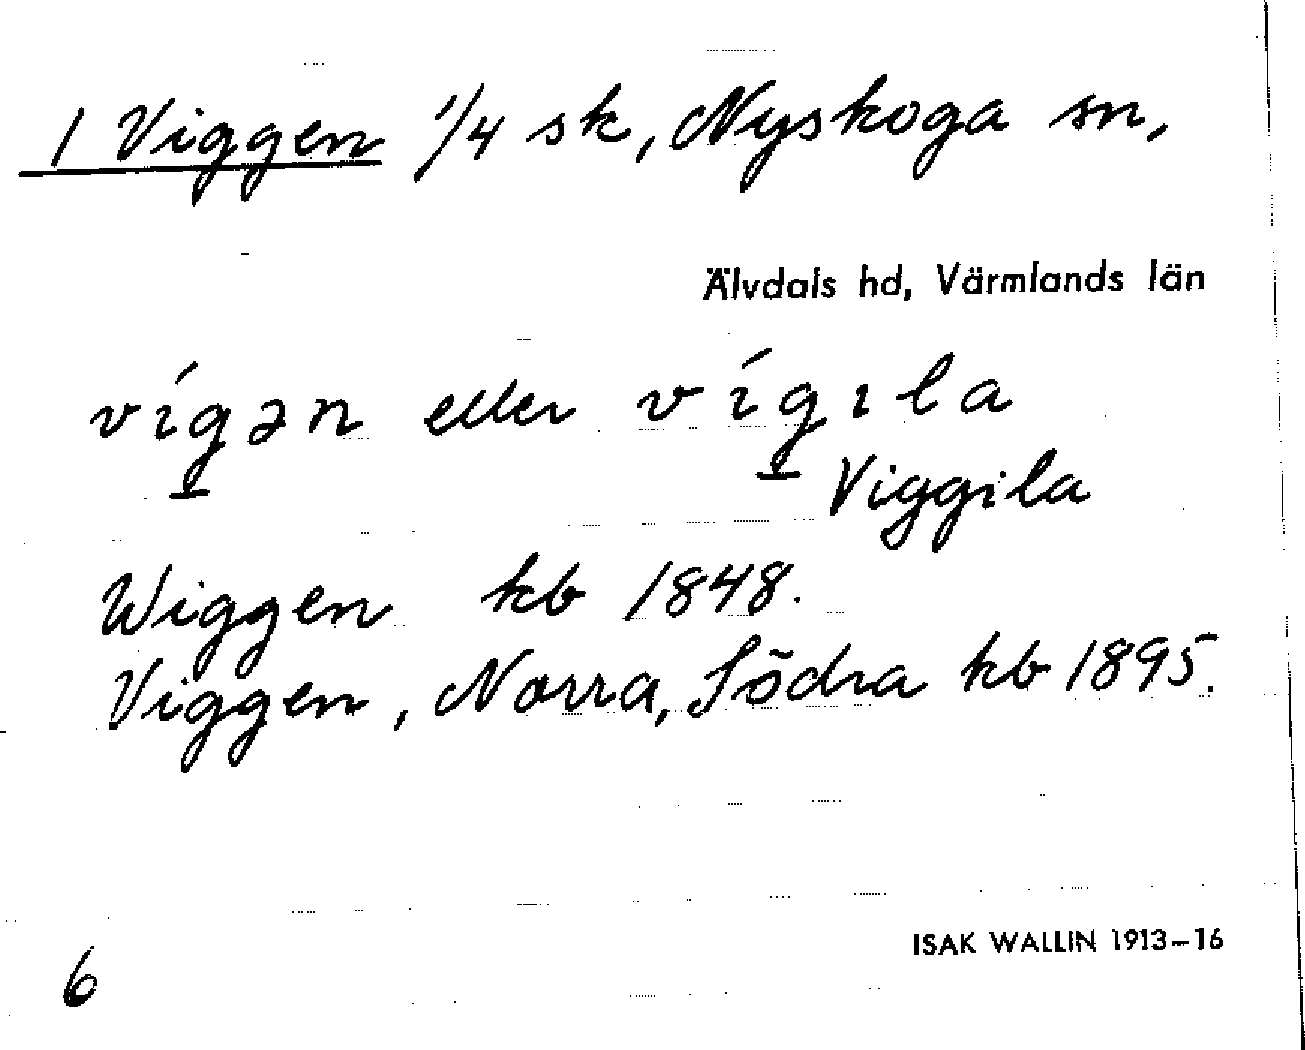 1 Viggen 1/4 sk, Nyskoga sn,
Älvdals hd, Värmlands län
vígən eller vígıla
Viggila
Wiggen kb 1848.
Viggen, Norra, Södra kb 1895.
ISAK WALLIN 1913–16
6